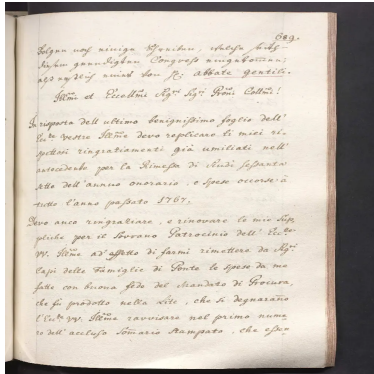 689.
folgen noch einige Schreiben, welche
Congress eingekommen;
als erstlich eines von H. Abbate Gentili.
Illmi et Eccellmi Sigri Sigri Proni Collmi!
In risposta dell ultimo benignissimo foglio dell'
Eccze vestre Illme devo replicare ti miei ri-
spettosi ringratiamenti già umiliati nell'
antecedente per la Rimessa di Scudi sessanta
otto dell' annuo onorario, e spese occorse à
tutto l'anno passato 1767.
Devo anco ringratiare, e rinovare le mie Sup-
pliche per il Sovrano Patrocinio dell' Eccze
VV. Illme ad effetto di farmi rimettere da Sigri
Capi delle Famiglie di Ponte le spese da me
fatte con buona fede del Mandato di Procura,
che fù prodotto nella Lite, che si degnarano
l'Eccze VV. Illme ravvisare nel primo nume-
ro dell' accluso Somario Stampato, che essen